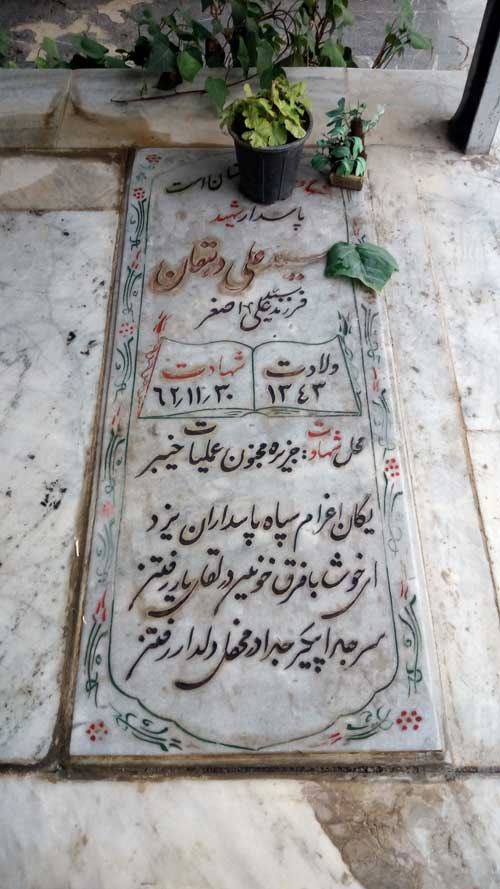 ستان است
پاسدار شهید
سید علی دهقان
فرزند سید علی اصغر
ولادت شهادت
۱۳۴۳ ۶۲٫۱۱٫۳۰
محل شهادت: جزیره مجنون عملیات خیبر
یگان اعزام سپاه پاسداران یزد
ای خوشا با فرق خونین در لقای یار رفتن
سر جدا پیکر جدا در محفل دلدار رفتن